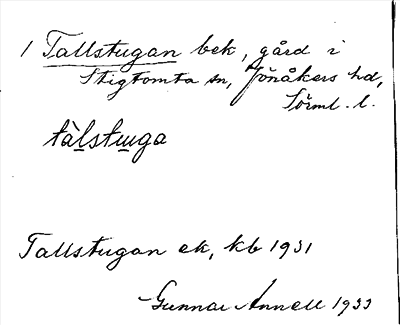 1 Tallstugan bek, gård i
Stigtomta sn, Jönåkers hd,
Sörml. l.
tàlstuga
Tallstugan ek, kb 1931
Gunnar Annell 1933